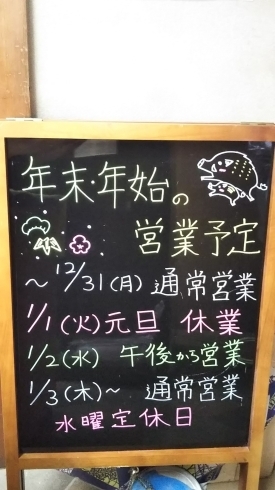 年末・年始の
営業予定
～12/31(月) 通常営業
1/1(火)元旦 休業
1/2(水) 午後から営業
1/3(木)～ 通常営業
水曜定休日